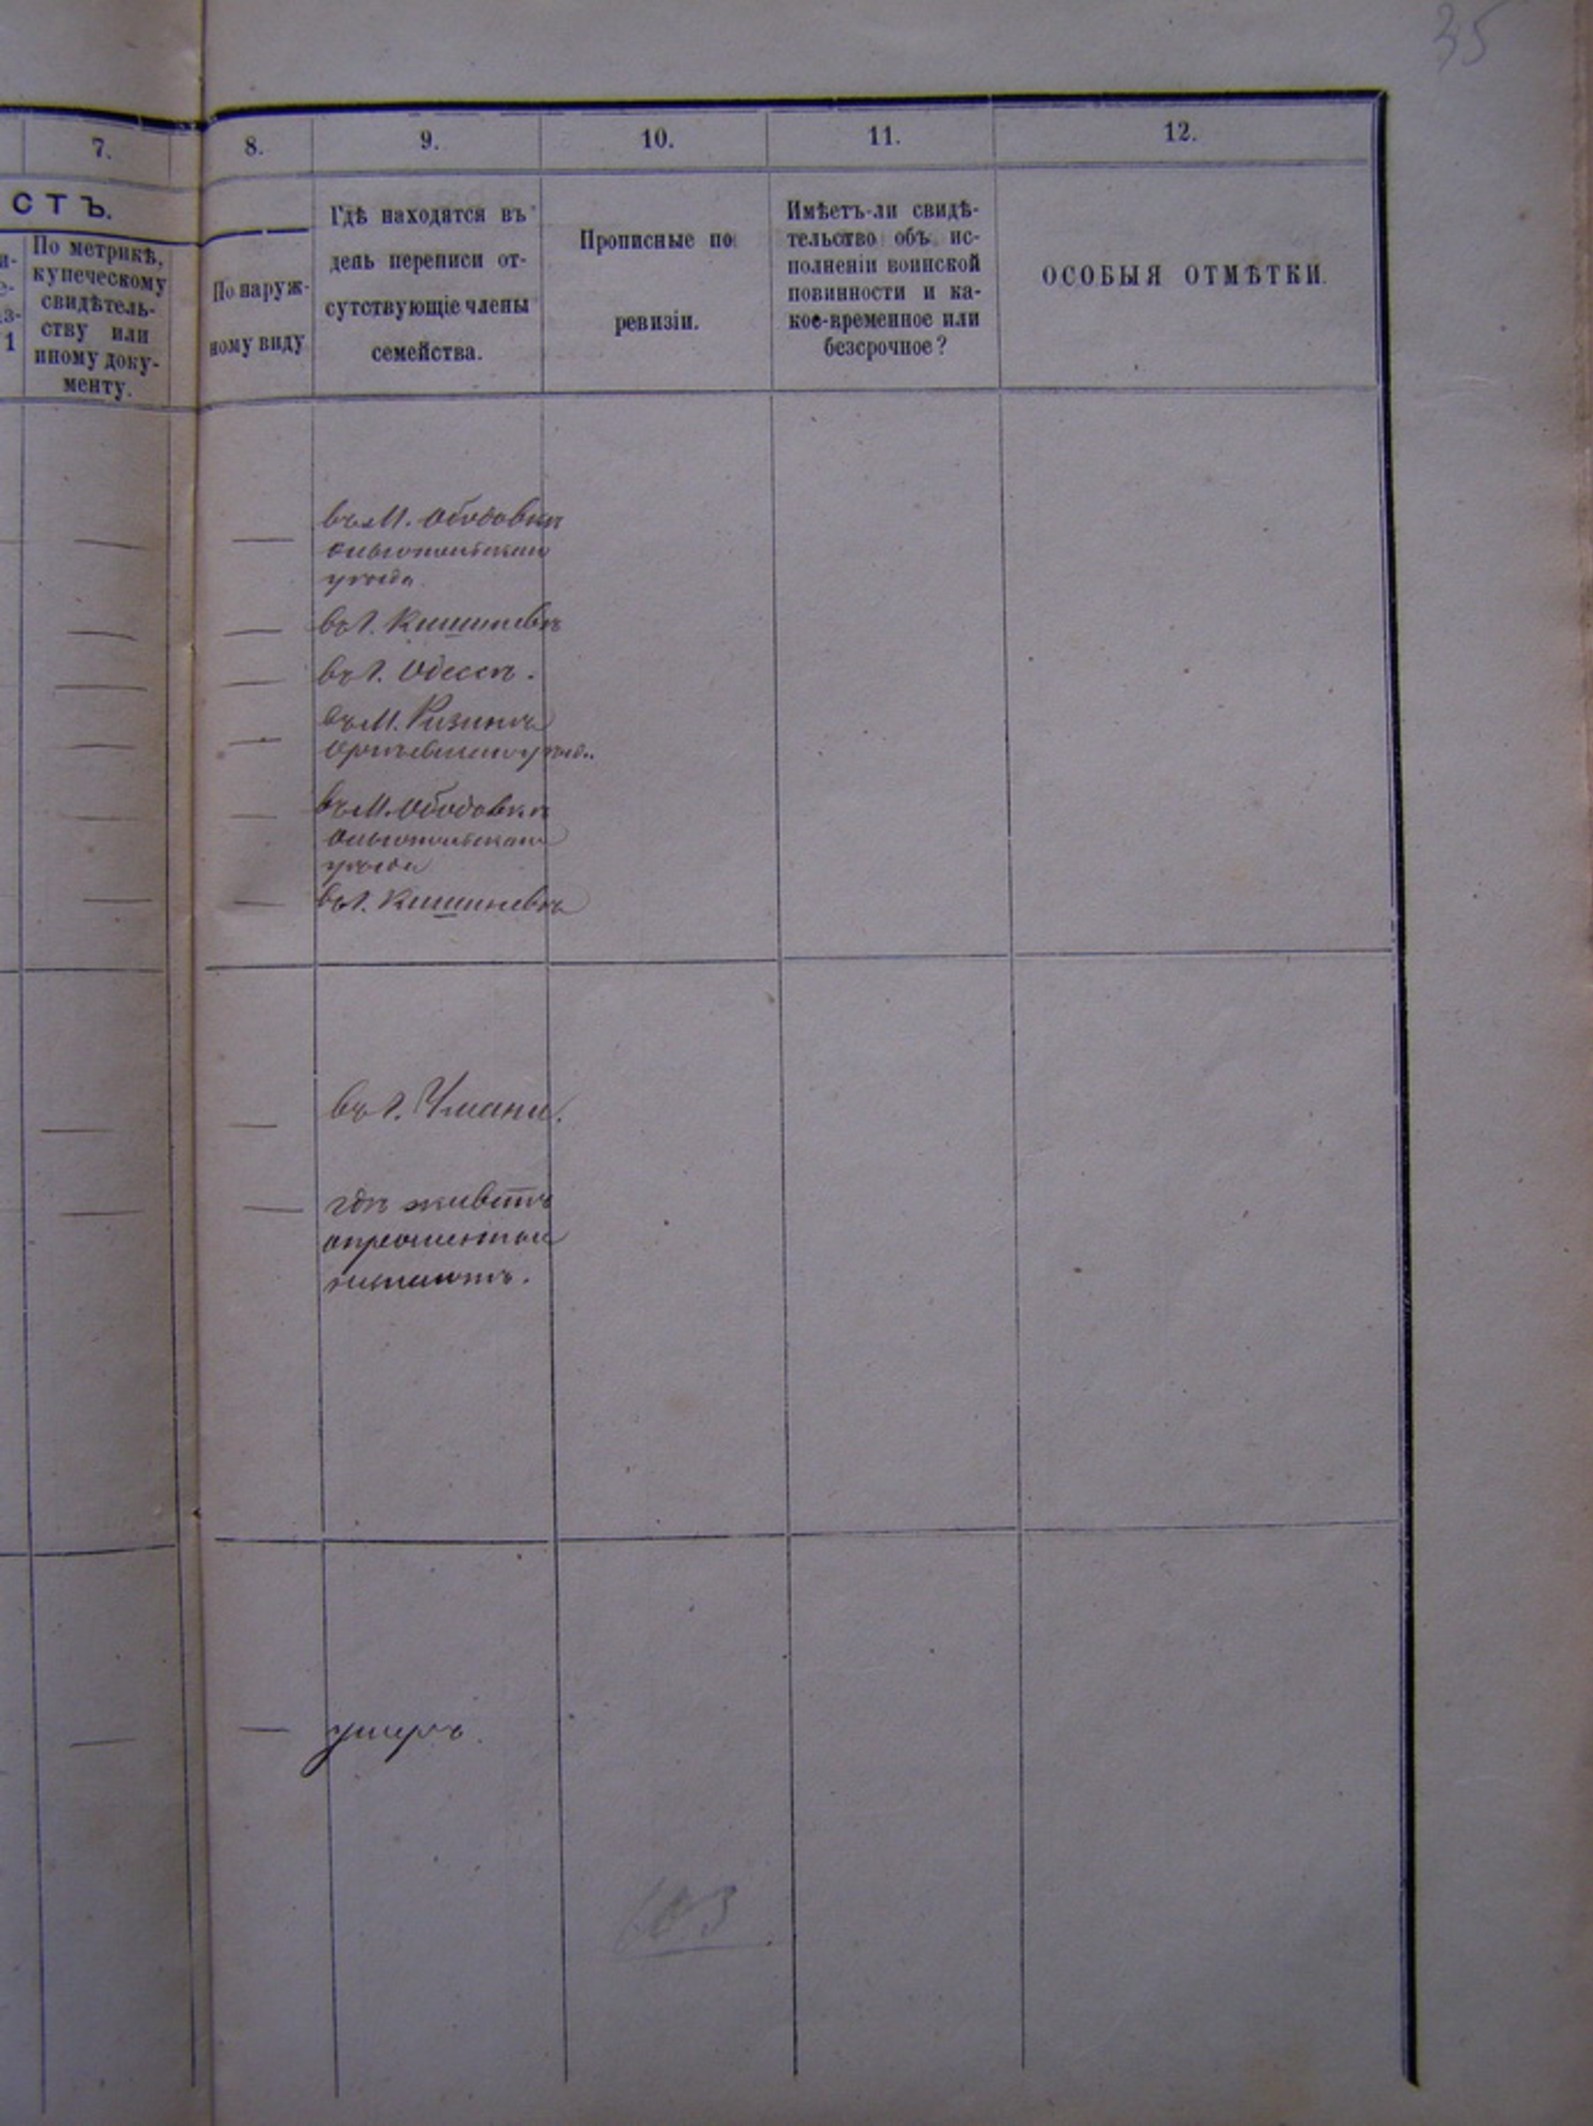 35
7.
8.
9.
10.
11.
12.
СТЪ.
По метрикѣ,
купеческому
свидѣтель-
ству или
иному доку-
менту.
По наруж-
ному виду
Гдѣ находятся въ
день переписи от-
сутствующіе члены
семейства.
Прописные по
ревизіи.
Имѣетъ-ли свидѣ-
тельство объ ис-
полненіи воинской
повинности и ка-
кое-временное или
безсрочное?
ОСОБЫЯ ОТМѢТКИ.
въ М. Ободовкѣ
Ольгопольскаго
уѣзда
въ Г. Кишиневѣ
въ Г. Одессѣ.
въ М. Ризинѣ
Оргѣевскаго уѣзд.
въ М. Ободовкѣ
Ольгопольскаго
уѣзда
въ Г. Кишиневѣ
въ Г. Умани.
гдѣ живетъ
умеръ.
603